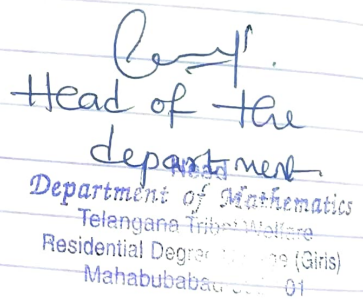 Head of the
department
Head
Department of Mathematics
Telangana Tribal Welfare
Residential Degree (Girls)
01